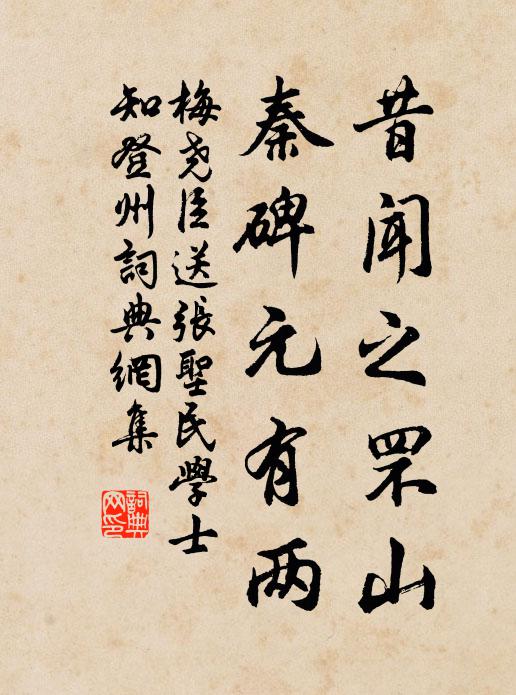 昔闻之罘山
秦碑元有两
梅尧臣送张聖民學士
知登州詞典網集
詞典网印